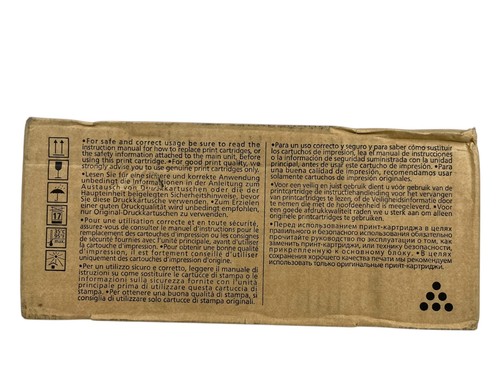 •For safe and correct usage be sure to read the
instruction manual for how to replace print cartridges, or
the safety information attached to the main unit, before
using this print cartridge. •For good print quality, we
strongly advise you to use genuine print cartridges only.
•Lesen Sie für eine sichere und korrekte Anwendung
unbedingt die Informationen in der Anleitung zum
Austausch von Druckkartuschen oder die der
Haupteinheit beigelegten Sicherheitshinweise, bevor
Sie diese Druckkartusche verwenden. •Zum Erzielen
einer guten Druckqualität wird unbedingt empfohlen,
nur Original-Druckkartuschen zu verwenden.
•Pour une utilisation correcte et en toute sécurité,
assurez-vous de consulter le manuel d'instructions pour le
remplacement des cartouches d'impression ou les consignes
de sécurité fournies avec l'unité principale, avant d'utiliser
la cartouche d'impression. •Pour obtenir une bonne qualité
d'impression, il est fortement conseillé d'utiliser
uniquement des cartouches d'impression d'origine.
•Per un utilizzo sicuro e corretto, leggere il manuale di
istruzioni su come sostituire le cartucce di stampa o le
informazioni di sicurezza fornite con l'unità
principale prima di utilizzare questa cartuccia di
stampa. •Per ottenere una buona qualità di stampa, si
consiglia di utilizzare cartucce di stampa originali.
•Para un uso correcto y seguro y para saber cómo sustituir
los cartuchos de impresión, lea el manual de instrucciones
o la información de seguridad suministrada con la unidad
principal, antes de usar este cartucho de impresión. •Para
una buena calidad de impresión, recomendamos usar
solamente cartuchos de impresión originales.
•Voor een veilig en juist gebruik dient u vóór gebruik van de
printcartridge de instructiehandleiding voor het vervangen
van printcartridges te lezen, of de Veiligheidsinformatie door
te nemen die met de hoofdeenheid is meegeleverd. •Voor
een goede afdrukkwaliteit raden we u sterk aan alleen
originele printcartridges te gebruiken.
•Перед использованием принт-картриджа в целях
правильного и безопасного использования обязательно
прочитайте руководство по эксплуатации о том, как
заменить принт-картридж, или технику безопасности,
прикрепленную к основному блоку. •В целях
сохранения хорошего качества печати мы рекомендуем
использовать только оригинальные принт-картриджи.